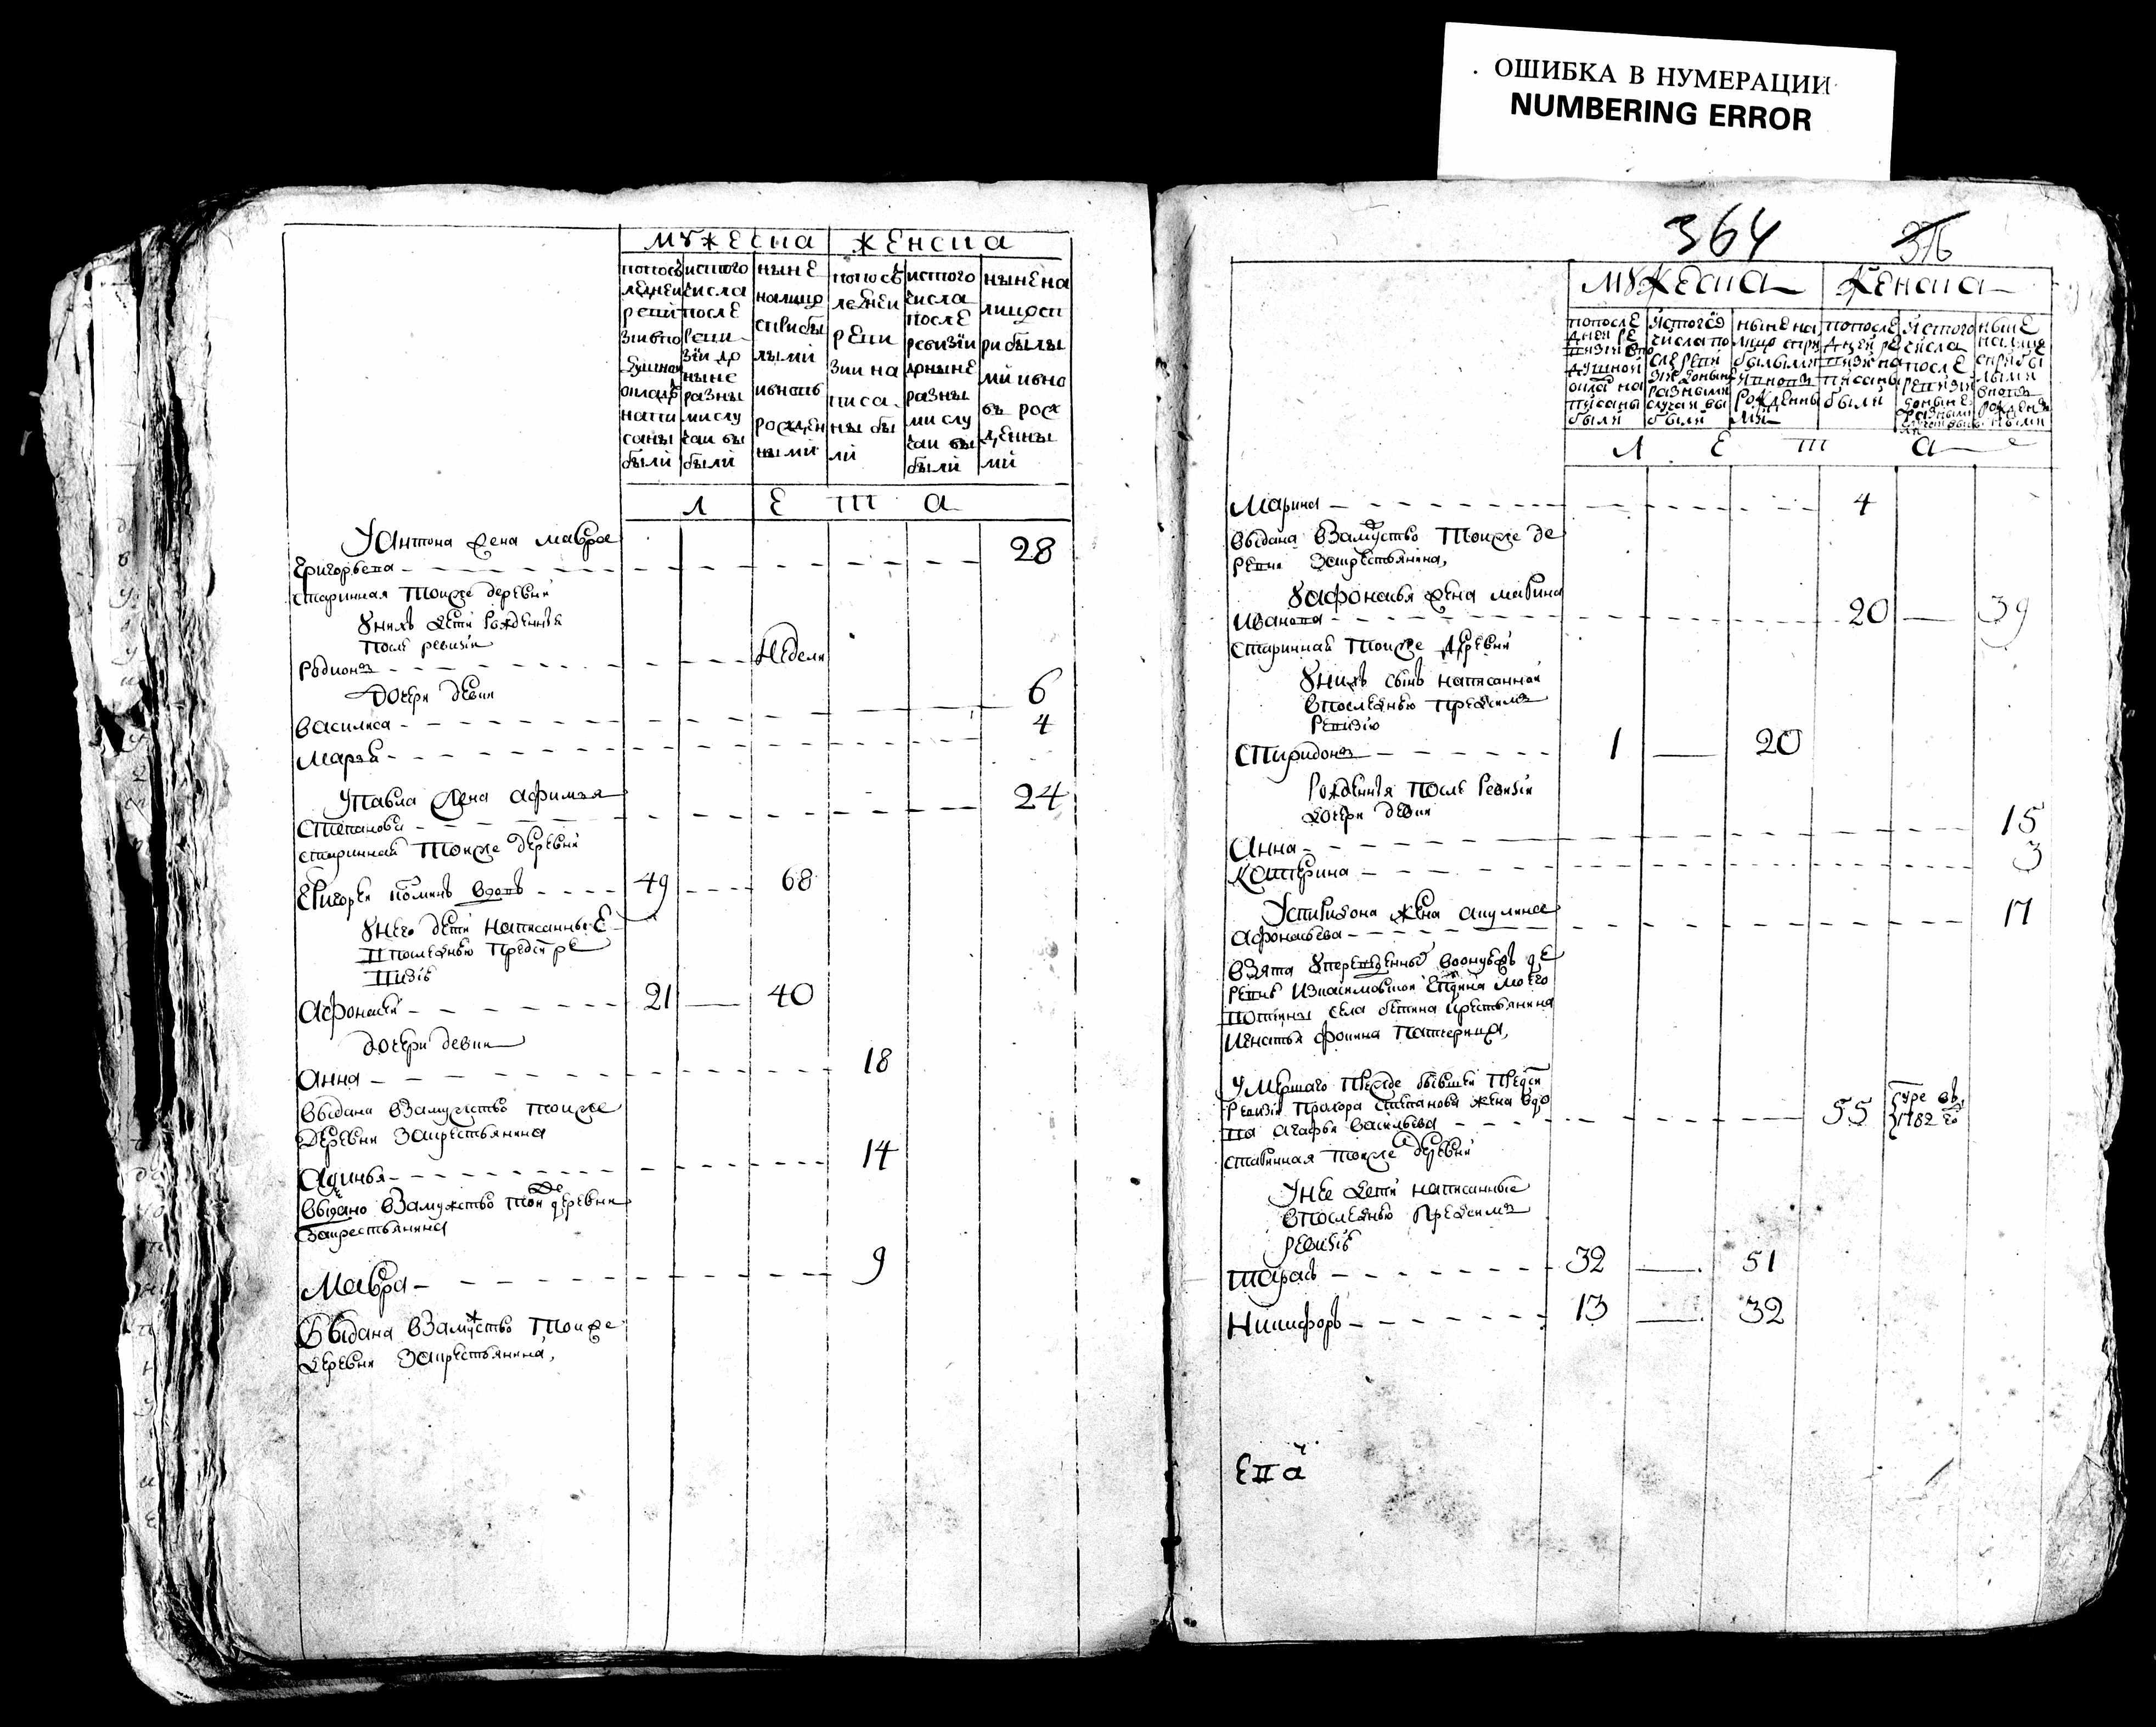 ОШИБКА В НУМЕРАЦИИ
NUMBERING ERROR
мужеска женска
попослѣ
дней
реви
зіи впо
душной
окладъ
напи
саны
были
истого
числа
после
реви
зіи до
ныне
разны
ми слу
чаи вы
были
ныне
налицо
сприбы
лыми
ивновь
рожден
ными
попослѣ
дней
реви
зии на
писа
ны бы
ли
истого
числа
после
ревизіи
доныне
разны
ми слу
чаи вы
были
ныне на
лицо сп
рибылы
ми ивно
вь рож
денны
ми
л е т а
У Антона жена мавра
григорьева 28
старинная тоиже деревни
у нихъ дети рожденныя
после ревизіи
родионъ недели
дочери девки
василиса 6
марѳа 4
У павла жена афимья
степанова 24
старинная тоиже деревни
григорей фоминъ вдовъ 49 68
у него дети написанные
в последнюю пред сим ре
визію
Афонасей 21 40
дочери девки
Анна 18
выдана в замужство тоиже
деревни за крестьянина
Авдинья 14
выдано в замужство той же деревни
за крестьянина
Мавра 9
Выдана в замужство тоиже
деревни за крестьянина,
364 376
мужеска женска
попосле
дней ре
визіи впо
душной
окладъ на
писаны
были
источго
числа по
сле реви
зіи доныне
разными
случаи вы
были
ныне на
лицо спри
былыми
и вновъ
рожденны
ми
попосле
дней ре
визіи на
писаны
были
истого
числа
после
ревизіи
доныне
разными
ныне
налицо
сприбы
лыми
вновь
рожден
ными
л е т а
Марина 4
выдана в замуство тоиже де
ревни за крестьянина,
У афонасья жена марина
Иванова 20 39
старинная тоиже деревни
у нихъ сынъ написанной
в последнюю пред симъ
ревизію
Спиридонъ 1 20
рожденныя после ревизіи
дочери девки
Анна 15
Катерина 3
У спиридона жена акулина
Афонасьева 17
взята
села крестьянина
Игнатья фокина
Умершаго прежде бывшей пред сим
ревизіи прохора степанова жена вдо
ва агафья васильева 55 умре въ 1782 го
старинная тоиже деревни
У нее дети написанные
в последнюю пред симъ
ревизію
Тарасъ 32 51
Никифоръ 13 32
Ева